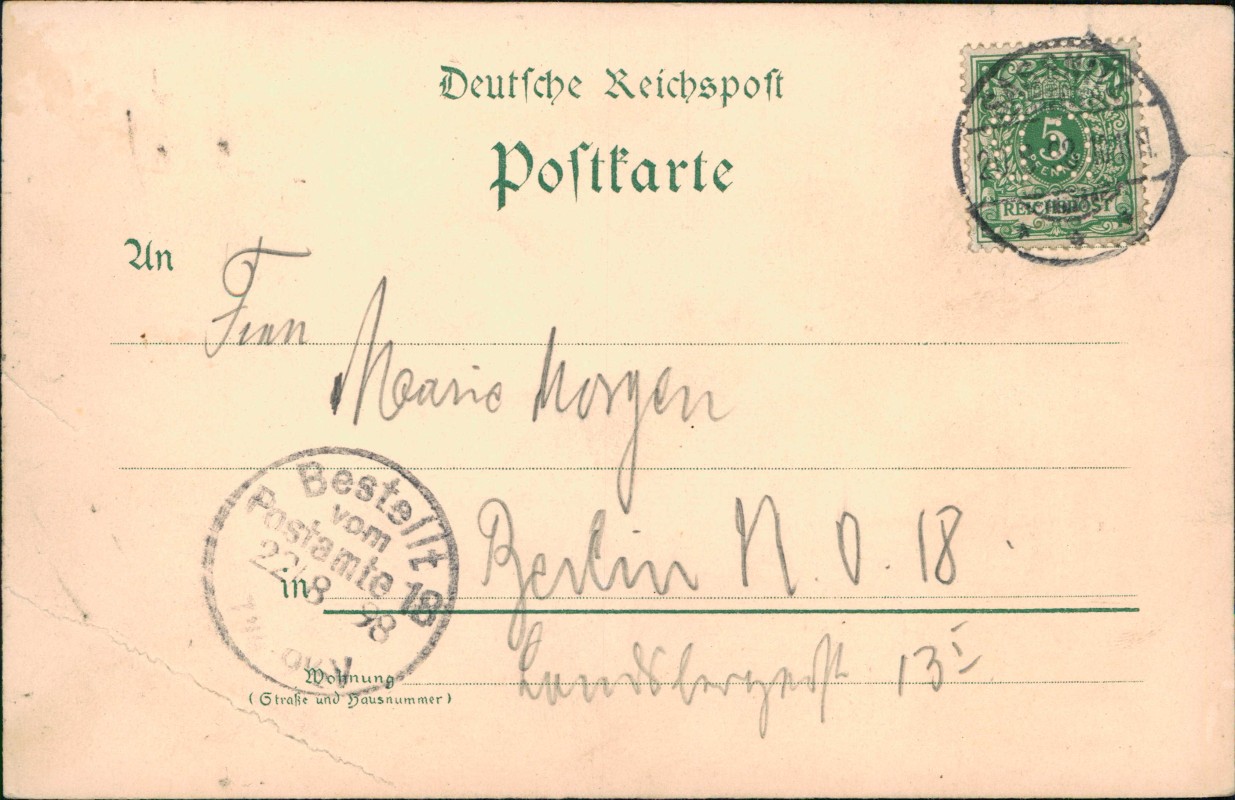 Deutsche Reichspost
Postkarte
5
PFENNIG
REICHSPOST
An
Frau
Marie Morgen
Bestellt
vom
Postamte 18
22/8 98
in Berlin N. O. 18
Wohnung Landsbergerst 13 I
(Straße und Hausnummer)